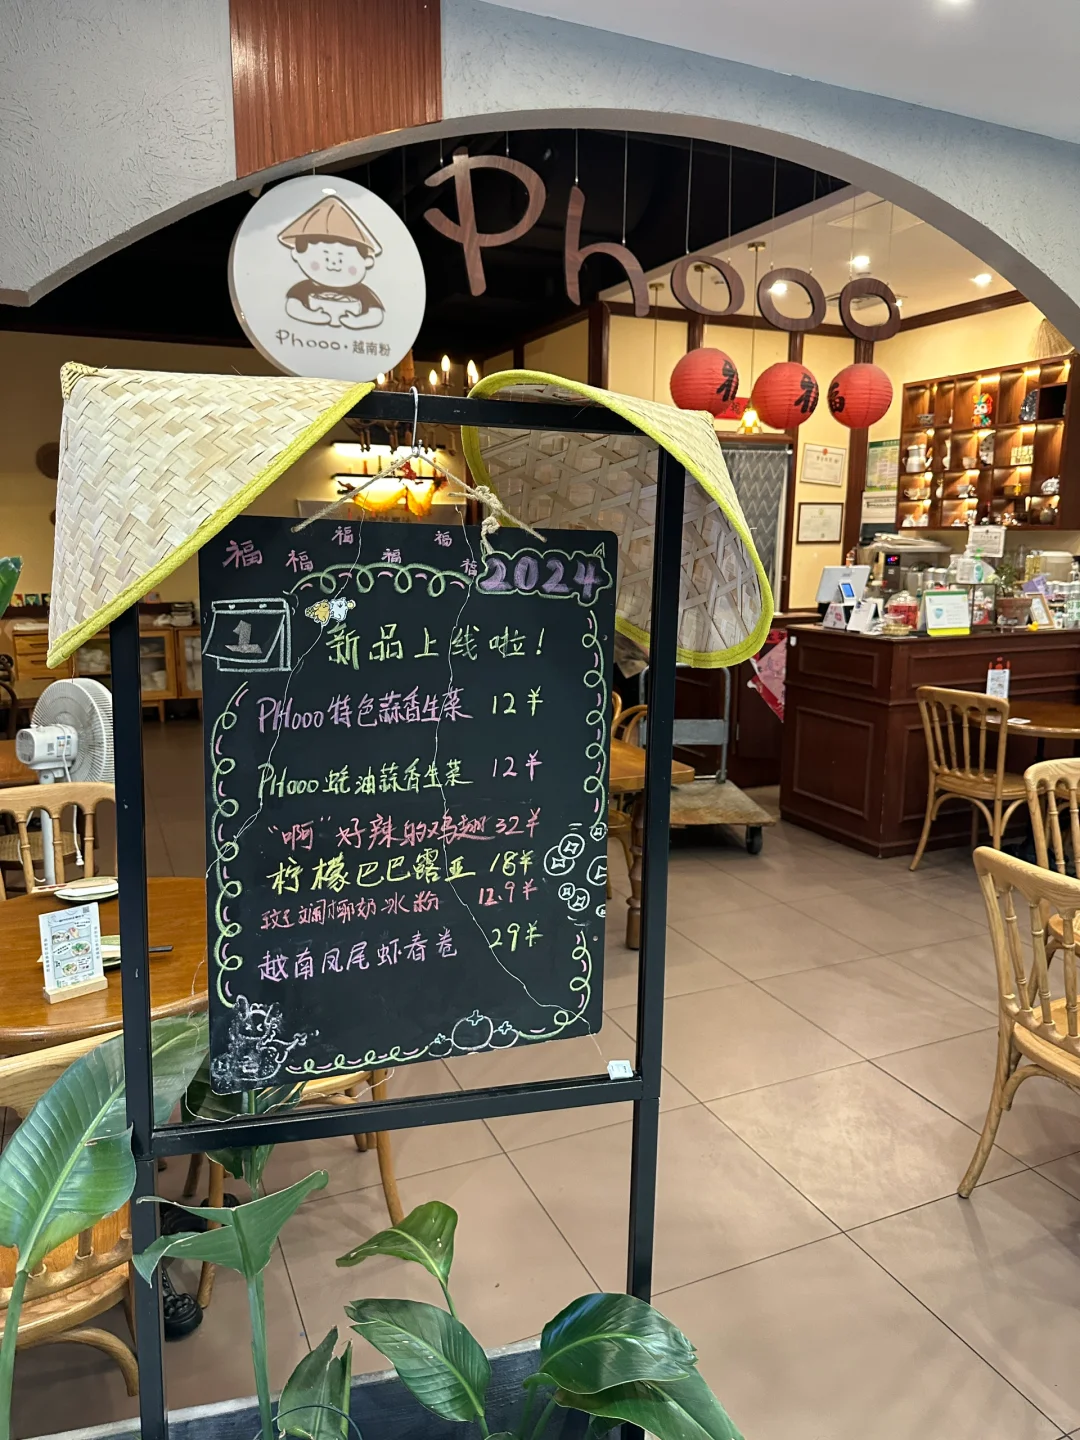 Phooo
Phooo·越南粉
福 福 福
福 福 福 福 福 福
2024
1
新品上线啦！
PHooo特色蒜香生菜 12¥
PHooo蚝油蒜香生菜 12¥
“啊”好辣的鸡翅 32¥
柠檬巴巴露亚 18¥
椰奶冰粉 12.9¥
越南凤尾虾春卷 29¥